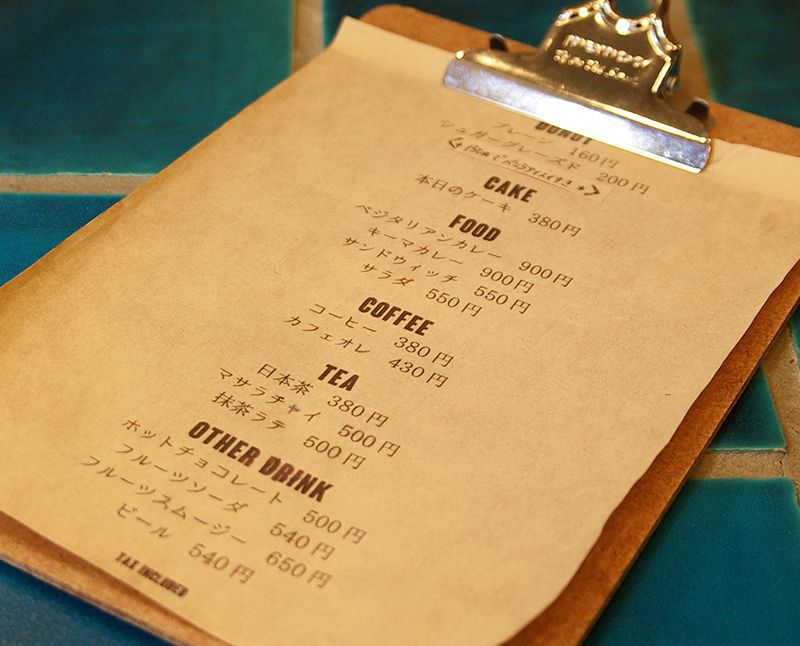 DONUT
プレーン 160円
シュガーグレーズド 200円
CAKE
本日のケーキ 380円
FOOD
ベジタリアンカレー 900円
キーマカレー 900円
サンドウィッチ 550円
サラダ 550円
COFFEE
コーヒー 380円
カフェオレ 430円
TEA
日本茶 380円
マサラチャイ 500円
抹茶ラテ 500円
OTHER DRINK
ホットチョコレート 500円
フルーツソーダ 540円
フルーツスムージー 650円
ビール 540円
TAX INCLUDED